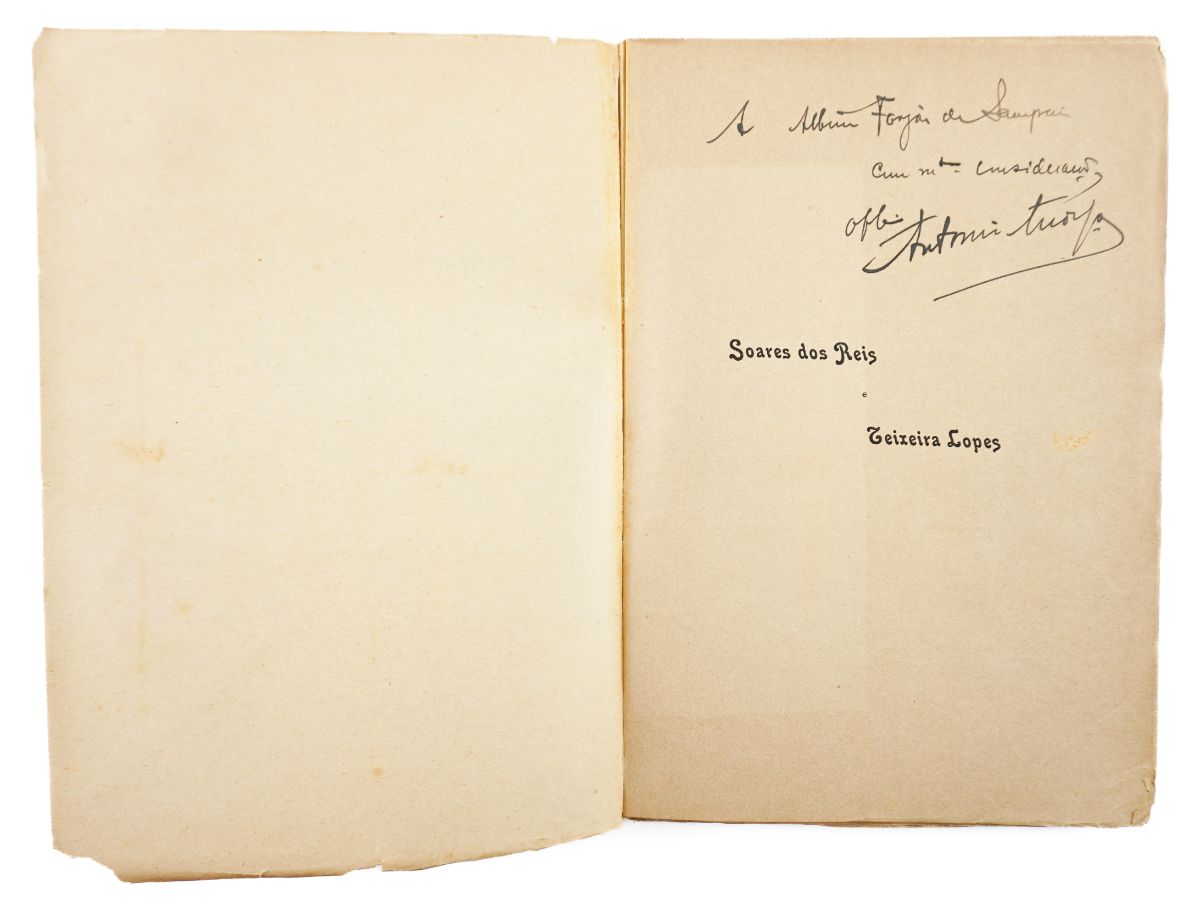 A Albino Forjaz de Sampaio
com mta. consideração
off.
Antonio Arroyo
Soares dos Reis
e
Teixeira Lopes